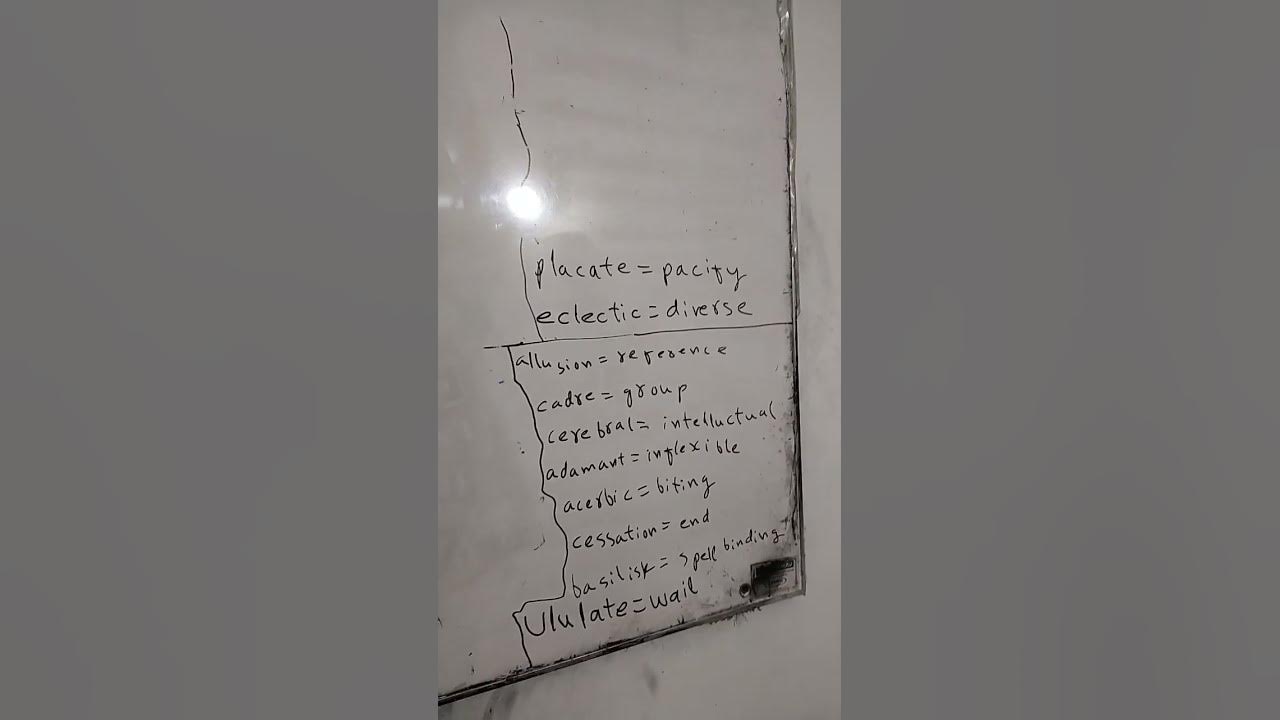 placate = pacify
eclectic = diverse
allusion = reference
cadre = group
cerebral = intelluctual
adamant = inflexible
acerbic = biting
cessation = end
basilisk = spell binding
Ululate = wail